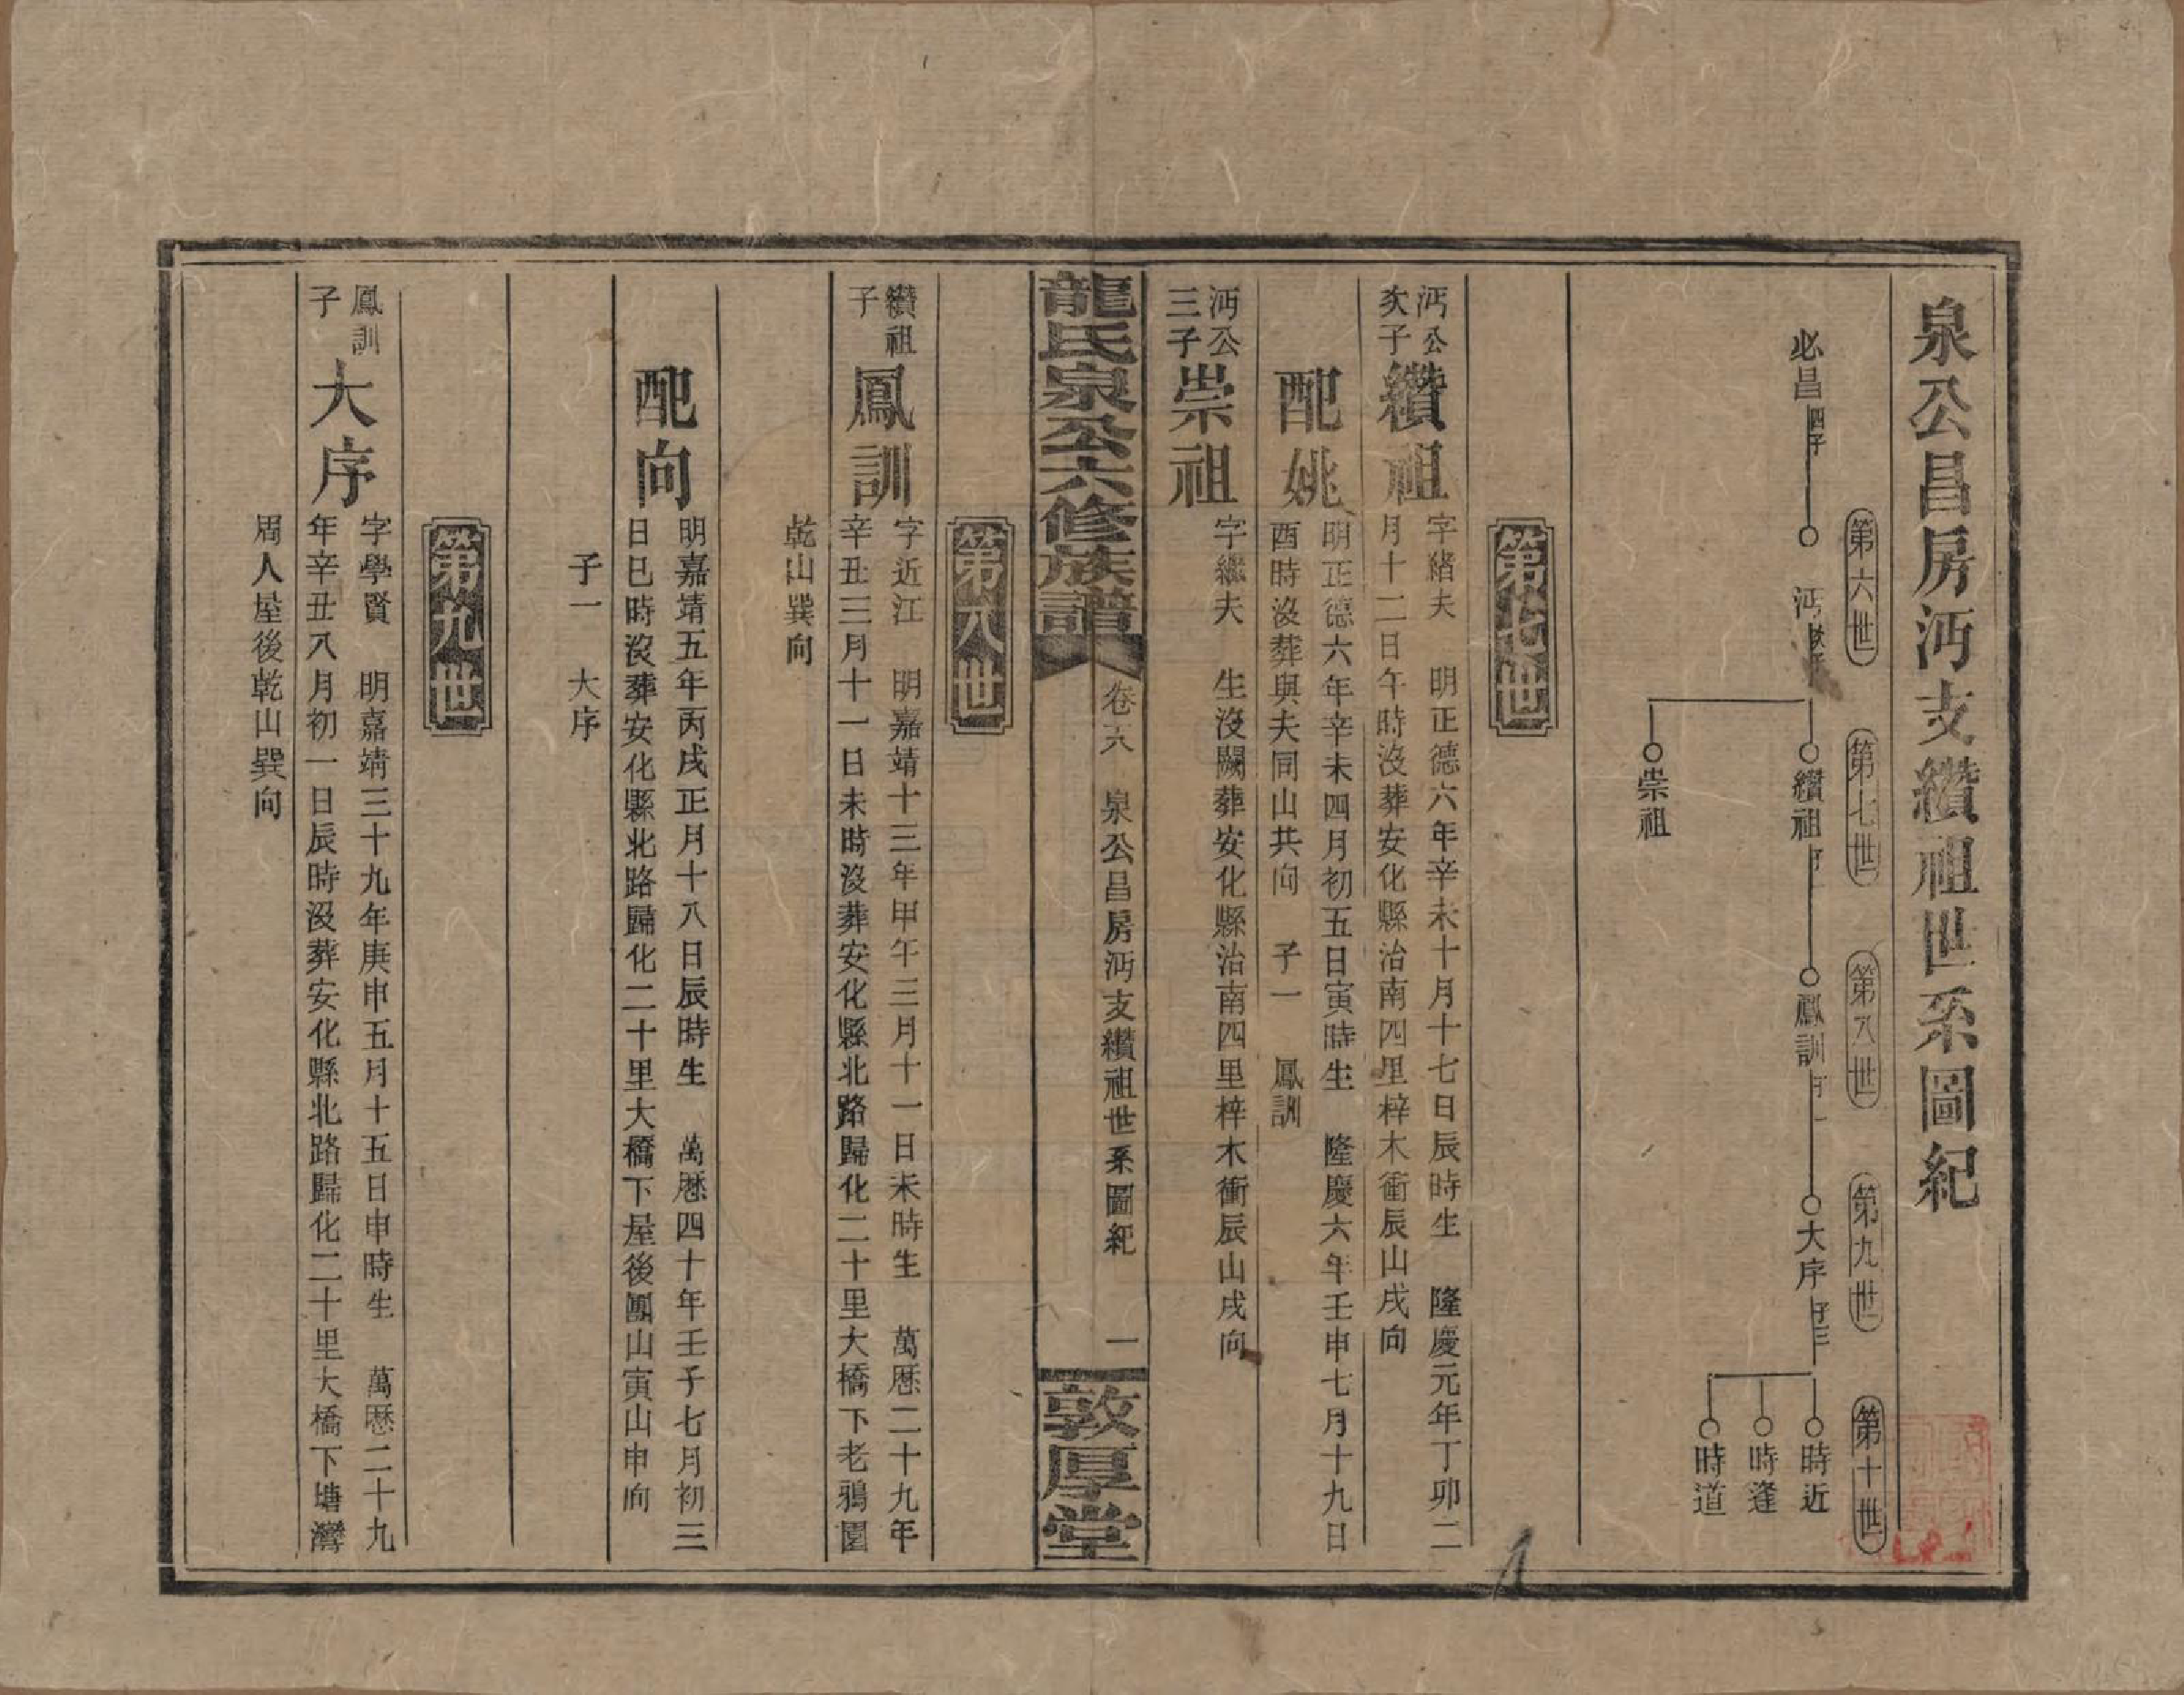 泉公昌房沔支纘祖世系圖紀
第六世
第七世
第八世
第九世
第十世
必昌 四子
沔 次子
纘祖 可一
鳳訓 可一
大序 子三
時近
時逢
時道
崇祖
第七世
沔公次子
纘祖
字緒夫 明正德六年辛未十月十七日辰時生 隆慶元年丁卯二
月十二日午時沒葬安化縣治南四里梓木衝辰山戌向
配姚
明正德六年辛未四月初五日寅時生 隆慶六年壬申七月十九日
酉時沒葬與夫同山共向 子一 鳳訓
沔公三子
崇祖
字繼夫 生沒闕葬安化縣治南四里梓木衝辰山戌向
龍氏泉公六修族譜
卷六 泉公昌房沔支纘祖世系圖紀 一
敦厚堂
第八世
纘祖子
鳳訓
字近江 明嘉靖十三年甲午三月十一日未時生 萬曆二十九年
辛丑三月十一日未時沒葬安化縣北路歸化二十里大橋下老鴉園
乾山巽向
配向
明嘉靖五年丙戌正月十八日辰時生 萬曆四十年壬子七月初三
日巳時沒葬安化縣北路歸化二十里大橋下屋後團山寅山申向
子一 大序
第九世
鳳訓子
大序
字學賢 明嘉靖三十九年庚申五月十五日申時生 萬曆二十九
年辛丑八月初一日辰時沒葬安化縣北路歸化二十里大橋下塘灣
周人屋後乾山巽向